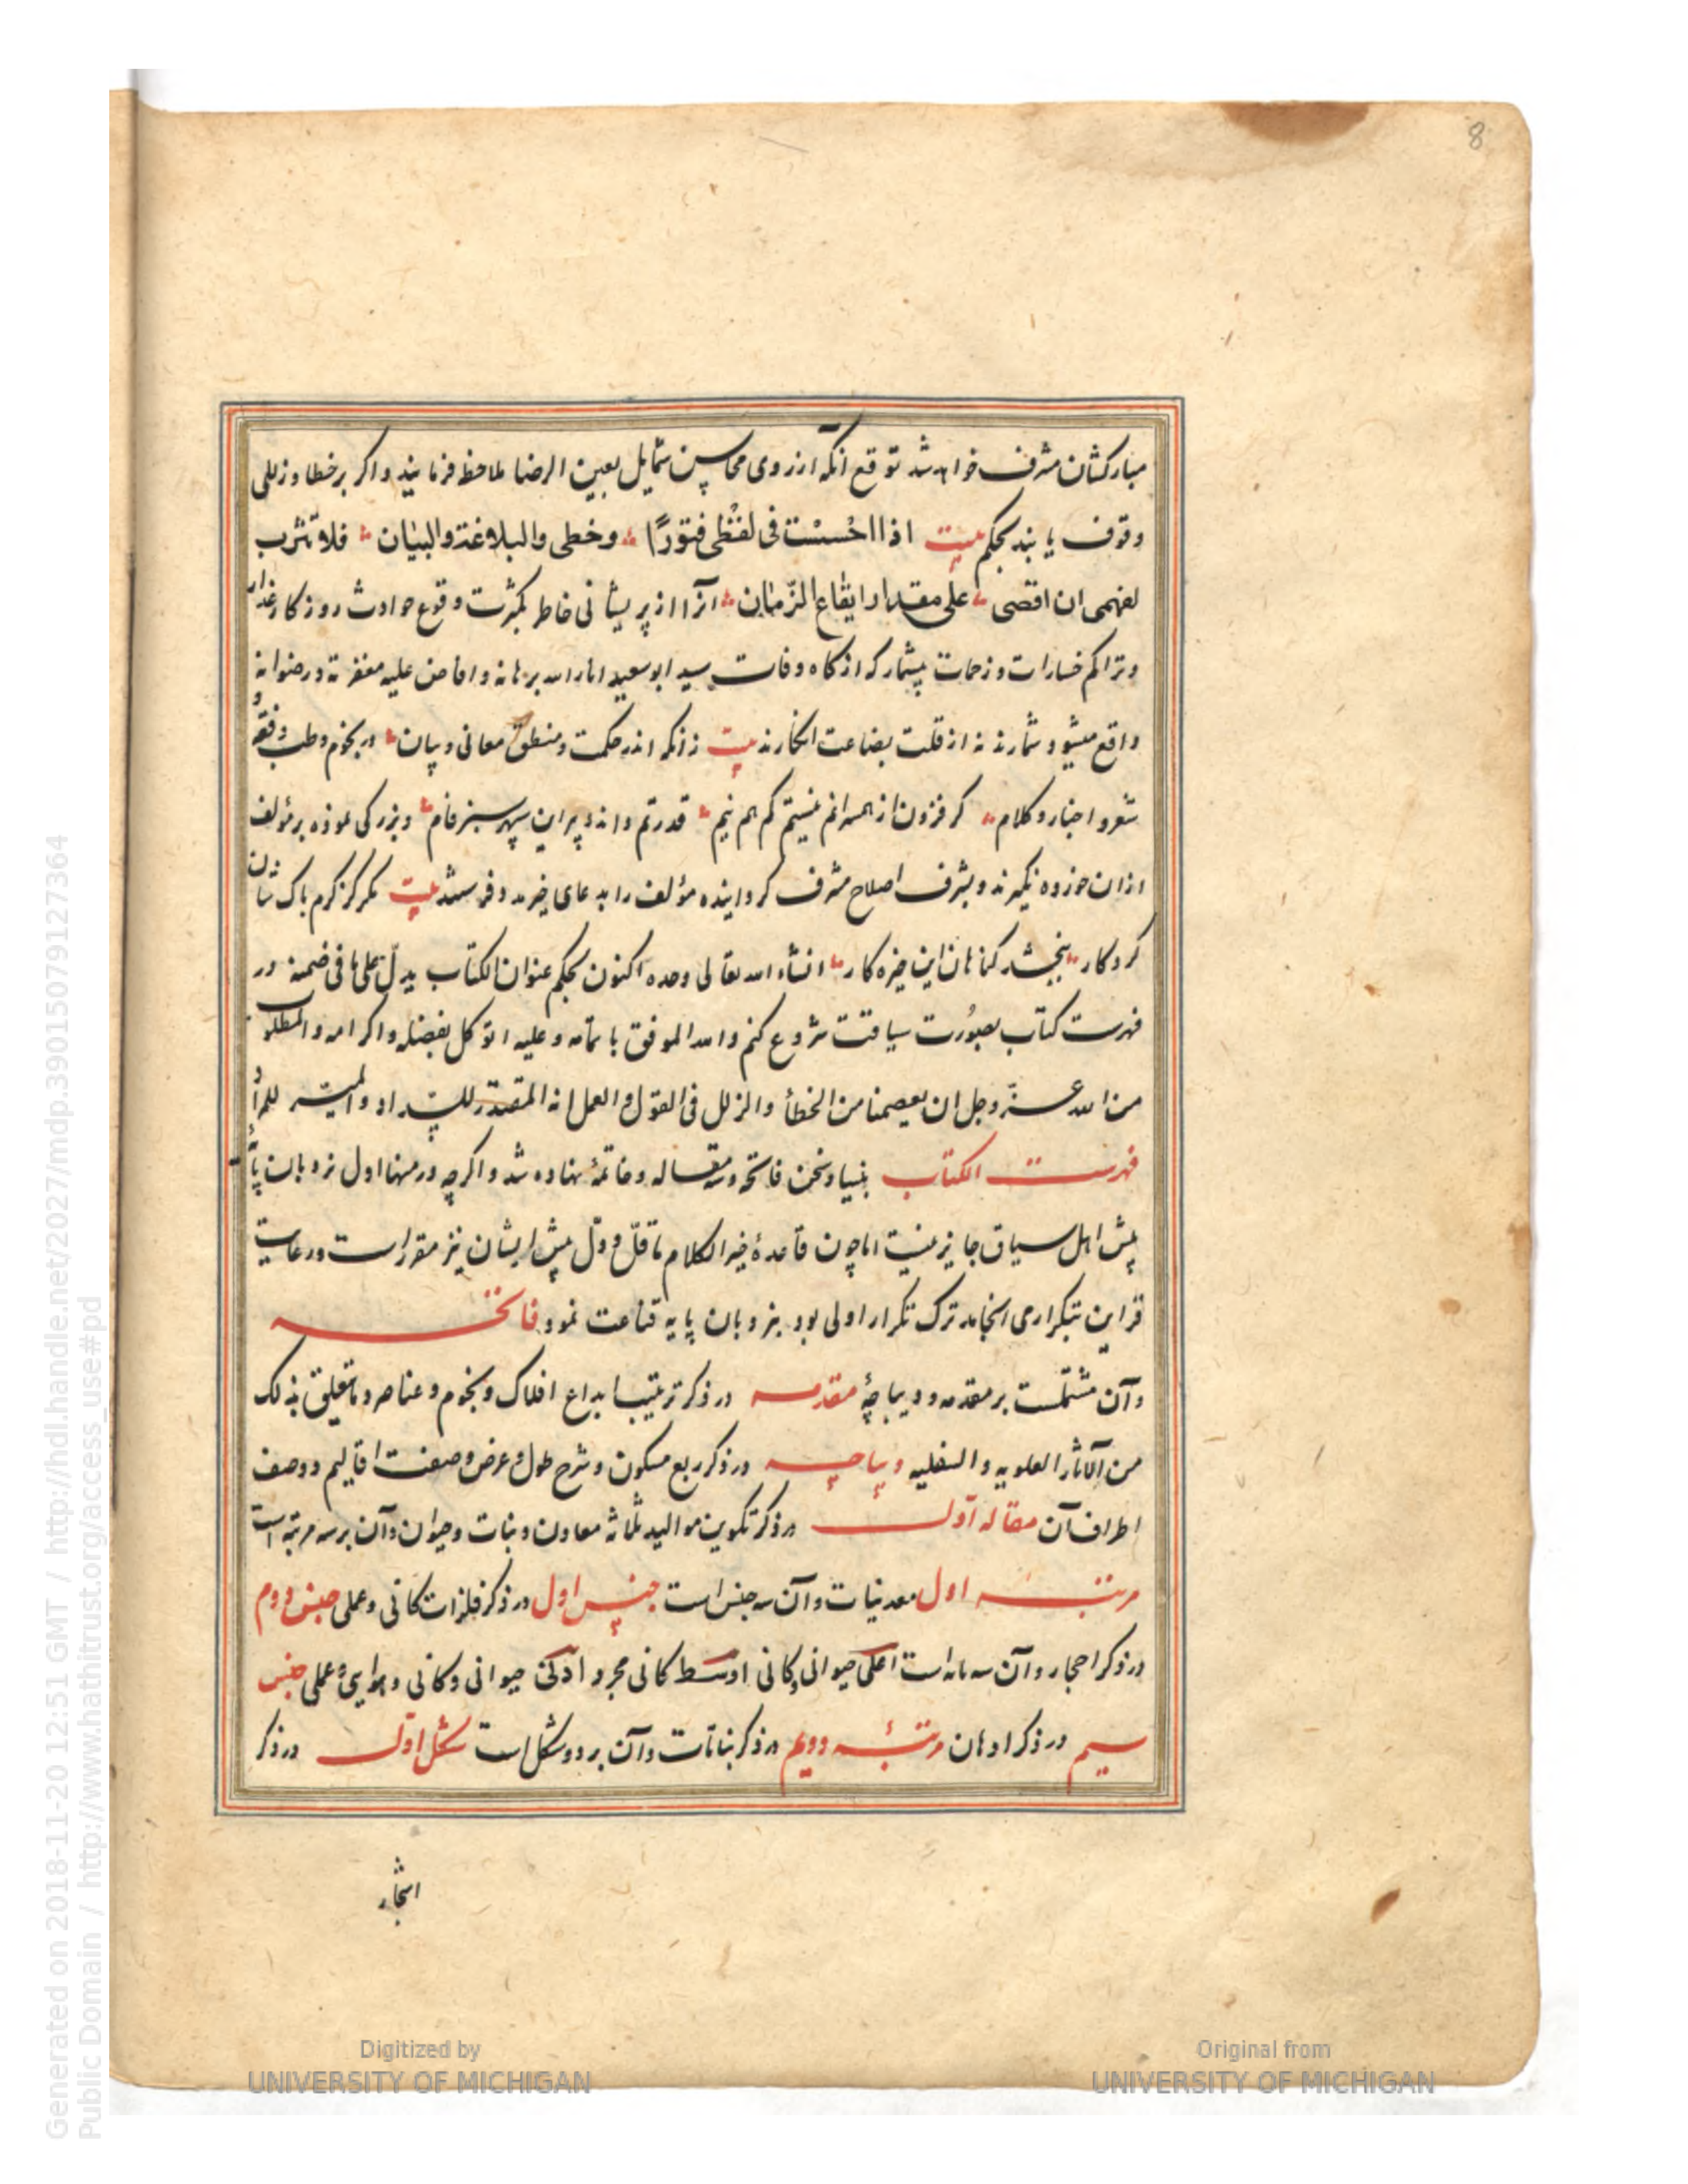 8
مبارکشان مشرف خواهد شد توقع انکه از روی محاسن شمایل بعین الرضا ملاحظه فرمایند و اکر بر خطا و زللی
وقوف یابند بحکم بیت اذا احسست فی لفظی فتورًا وخطی والبلاغة والبیان فلا ترتب
لفهمی ان اقصی علی مقدار ایقاع الزمان آنرا از پریشانی خاطر بکثرت وقوع حوادث روزکار غدار
وتراکم خسارات و زحمات بیشمار که از کاه وفات سید ابو سعید انار الله برهانه وافاض علیه مغفرته و رضوانه
واقع میشود شمارند نه از قلت بضاعت انکارند بیت زانکه اندر حکمت و منطق معانی و بیان در نجوم و طب و فقه
شعر و اخبار و کلام کر فزون از همسرانم نیستم کم هم نیم قدرتم داند و پیر این سپهر سبز فام و بزرکی نموده بر مؤلف
ازان خرده نکیرند و بشرف اصلاح مشرف کردانیده مؤلف را بدعای خیر مدد فرستند بیت مکر کز کرم باک شان
کردکار ببخشد کناهان این خیره کار انشاء الله تعالی وحده اکنون بحکم عنوان الکتاب یدل علی ما فی ضمنه در
فهرست کتاب بصورت سیاقت شروع کنم والله الموفق باتمامه وعلیه اتوکل بفضله واکرامه والمطلوب
من الله عز وجل ان یعصمنا من الخطأ والزلل فی القول والعمل انه المقتدر للسداد والمیسر للمراد
فهرست الکتاب بنیاد سخن فاتحه و سه مقاله و خاتمه نهاده شد و اکر چه در منها اول نردبان پایه
پیش اهل سیاق جایز نیست اما چون قاعدهٔ خیر الکلام ما قلّ و دلّ پیش ایشان نیز مقرر است و رعایت
قراین بتکرار می انجامد ترک تکرار اولی بود بنردبان پایه قناعت نمود فاتحه
وآن مشتملست بر مقدمه و دیباچهٔ مقدمه در ذکر ترتیب ابداع افلاک و نجوم و عناصر و ما تعلیق بذلک
من الآثار العلویه و السفلیه دیباجه در ذکر ربع مسکون و شرح طول و عرض و صفت اقالیم و وصف
اطراف آن مقاله اول در ذکر تکوین موالید ثلاثه معادن و نبات و حیوان و آن بر سه مرتبه است
مرتبه اول معدنیات وآن سه جنس است جنس اول در ذکر فلزات کانی و عملی جنس دوم
در ذکر احجار و آن سه مانه است اعلی حیوانی و کانی اوسط کانی مجرد ادنی حیوانی و کانی و هوایی و عملی جنس
سیم در ذکر ادهان مرتبهٔ دویم در ذکر نباتات وآن بر دو شکل است شکل اول در ذکر
اشجار
Generated on 2018-11-20 12:51 GMT / http://hdl.handle.net/2027/mdp.39015079127364
Public Domain / http://www.hathitrust.org/access_use#pd
Digitized by
UNIVERSITY OF MICHIGAN
Original from
UNIVERSITY OF MICHIGAN